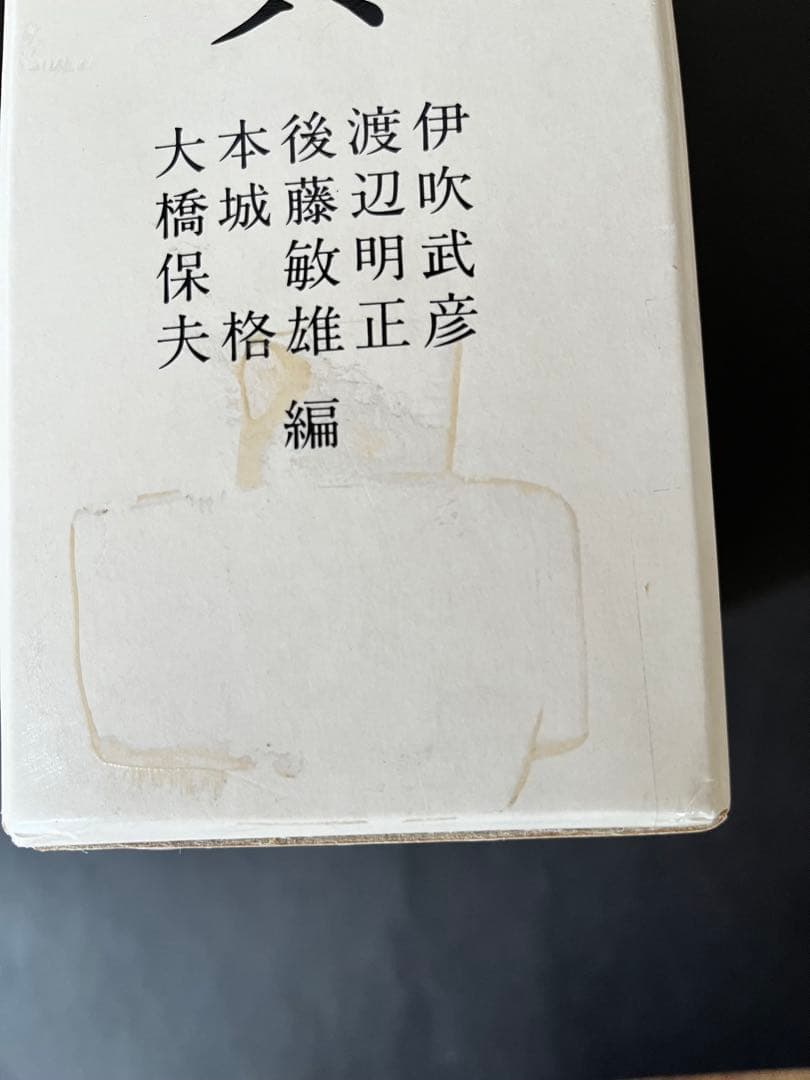 伊吹武彦
渡辺明正
後藤敏雄
本城 格
大橋保夫
編